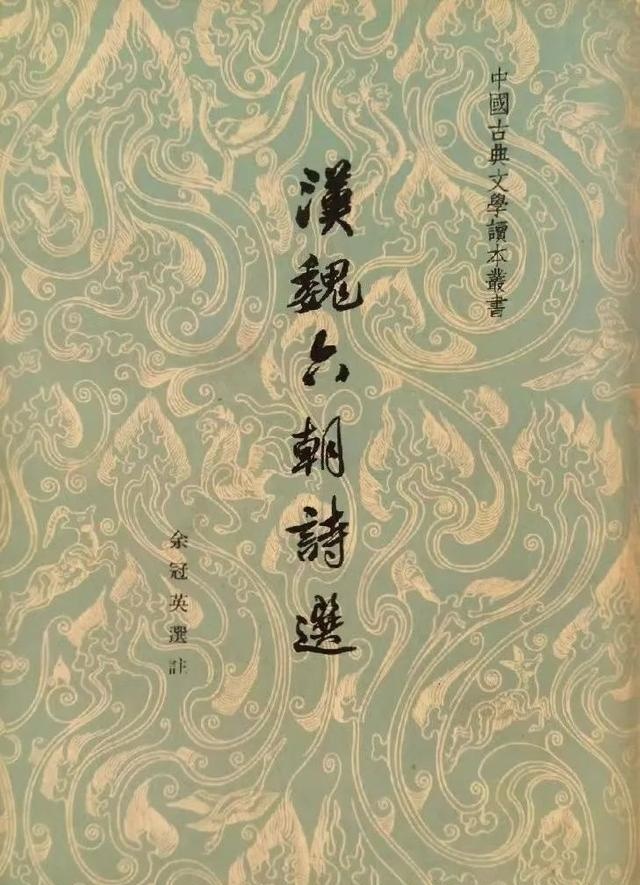 中國古典文學讀本叢書
漢魏六朝詩選
余冠英選註